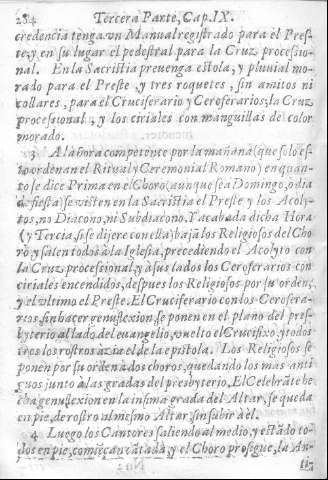 284 Tercera Parte, Cap. IX.
credencia tenga vn Manual registrado para el Pres-
te, y en su lugar el pedestral para la Cruz processio-
nal. En la Sacristia preuenga estola, y pluuial mo-
rado para el Preste y tres roquetes, sin amitos ni
collares, para el Cruciferario y Ceroferarios; la Cruz
processional, y los ciriales con manguillas del color
morado.
3 A la hora competente por la mañana (que solo es-
to ordenan el Ritual y Ceremonial Romano) en quan-
to se dice Prima en el Choro (aunque sea Domingo, ò dia
de fiesta) se visten en la Sacristia el Preste y los Acoly-
tos, no Diacono, ni Subdiacono. Y acabada dicha Hora
(y Tercia, si se dijere con ella) baja los Religiosos del Cho
ro y salen todos à la Iglesia, precediendo el Acolyto con
la Cruz processional, y à sus lados los Ceroferarios con
ciriales encendidos, despues los Religiosos por su orden,
y el vltimo el Preste. El Cruciferario con los Cerofera-
rios, sin hacer genuflexion, se ponen en el plano del pres-
byterio al lado del euangelio, vuelto el Crucifixo, y todos
tres los rostros àzia el de la epistola. Los Religiosos se
ponen por su orden à dos choros, quedando los mas anti
guos junto à las gradas del presbyterio. El Celebrãte he
cha genuflexion en la insima grada del Altar, se queda
en pie, de rostro al mismo Altar, sin subir à èl.
4 Luego los Cantores saliendo al medio, y estãdo to-
dos en pie, comiẽcan cãtada, y el Choro prosigue, la An-